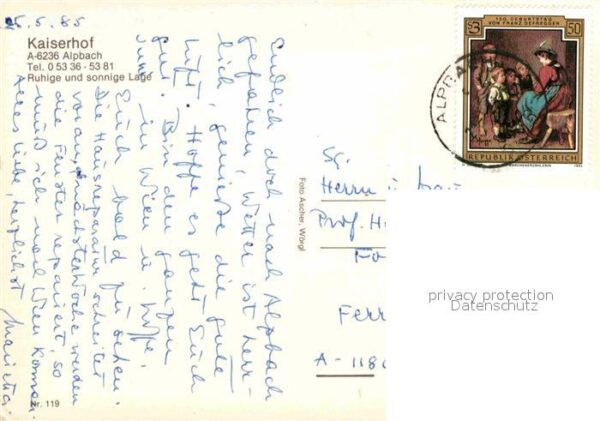 25.5.85
Kaiserhof
A-6236 Alpbach
Tel. 0 53 36 - 53 81
Ruhige und sonnige Lage
Endlich doch nach Alpbach
gefahren, Wetter ist herr-
lich, genieße die gute
Luft. Hoffe es geht Euch
gut. Bin den ganzen
Juni in Wien u. hoffe,
Euch bald zu sehen.
Die Hausreparatur schreitet
voran, nächste Woche werden
die Fenster repariert, so
muß ich nach Wien kommen
Alles Liebe, herzlichst
Marietta
Nr. 119
Foto Ascher, Wörgl
150. GEBURTSTAG
VON FRANZ DEFREGGER
S 3 50
REPUBLIK ÖSTERREICH
ALPBA
Herrn u.
Prof. H
Ferr
A-1180
privacy protection
Datenschutz